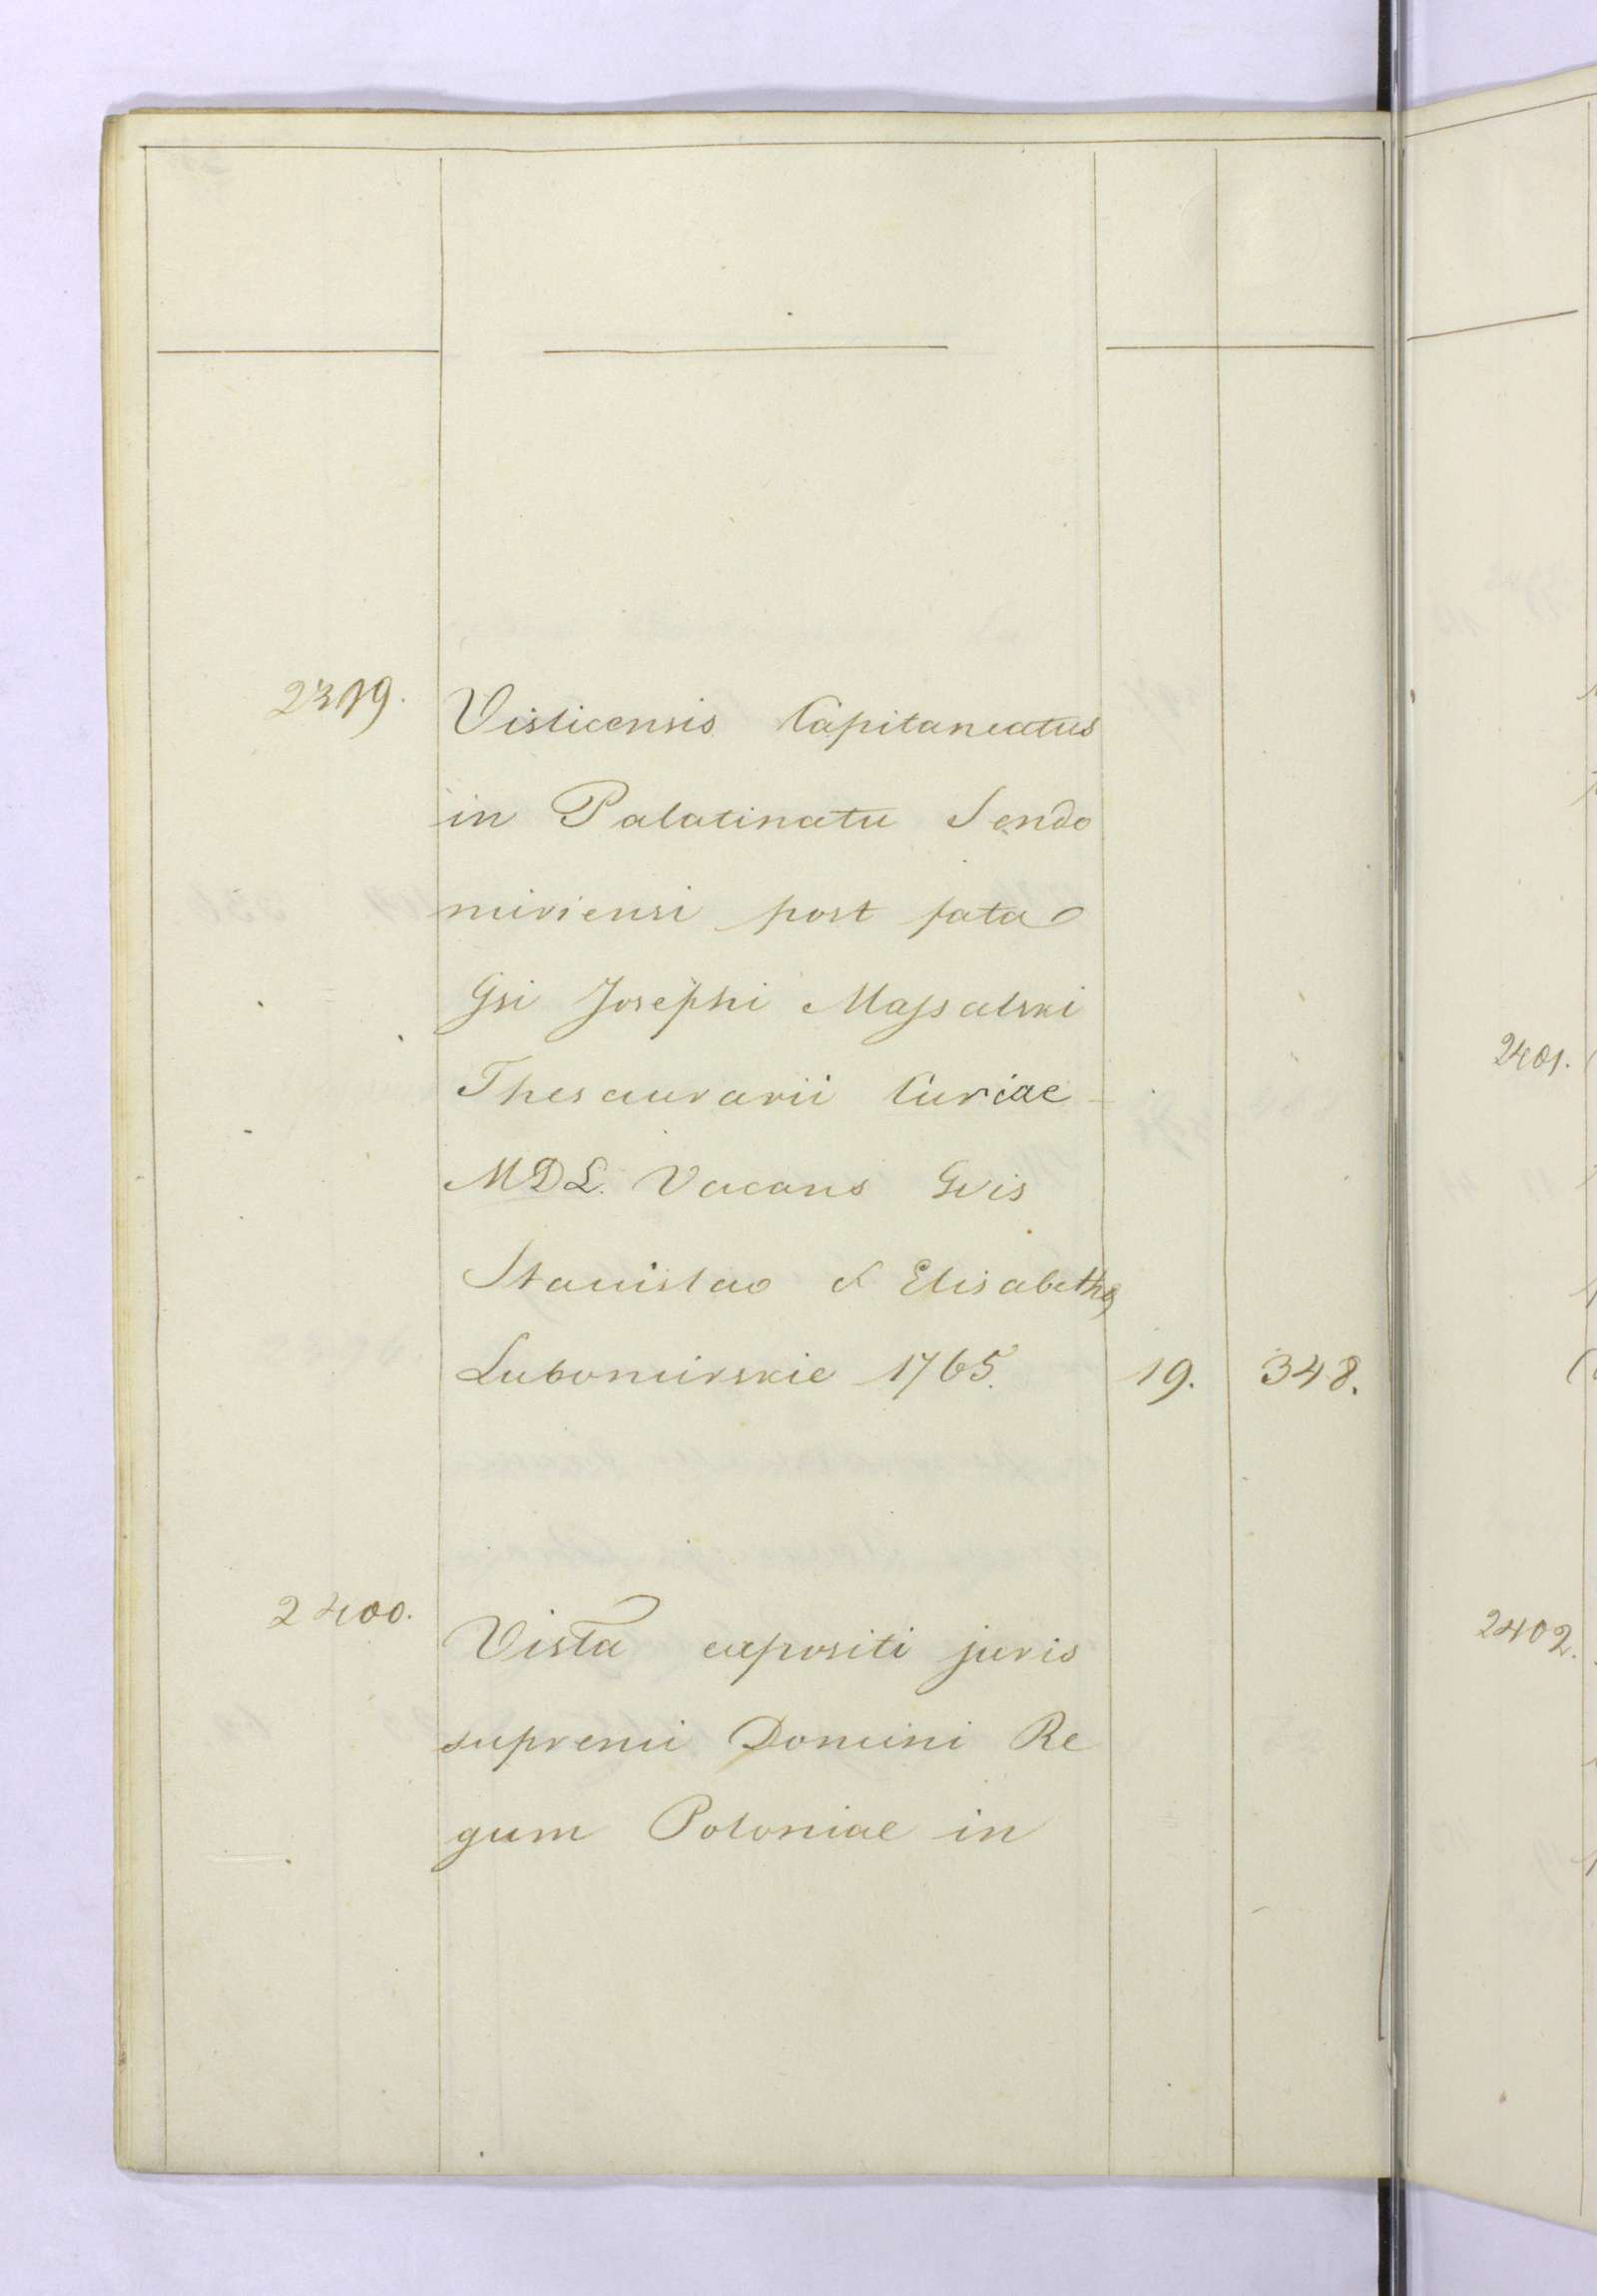 2399.
Visticensis Capitaneatus
in Palatinatu Sendo
miriensi post fata
Gsi Josephi Massalski
Thesaurarii Curiae
MDL. Vacans Gvis
Stanislao & Elisabethæ
Lubomirskie 1765. 19. 348.
2400.
Vista expositi juris
supremi Domini Re
gum Poloniae in
2401.
2402.